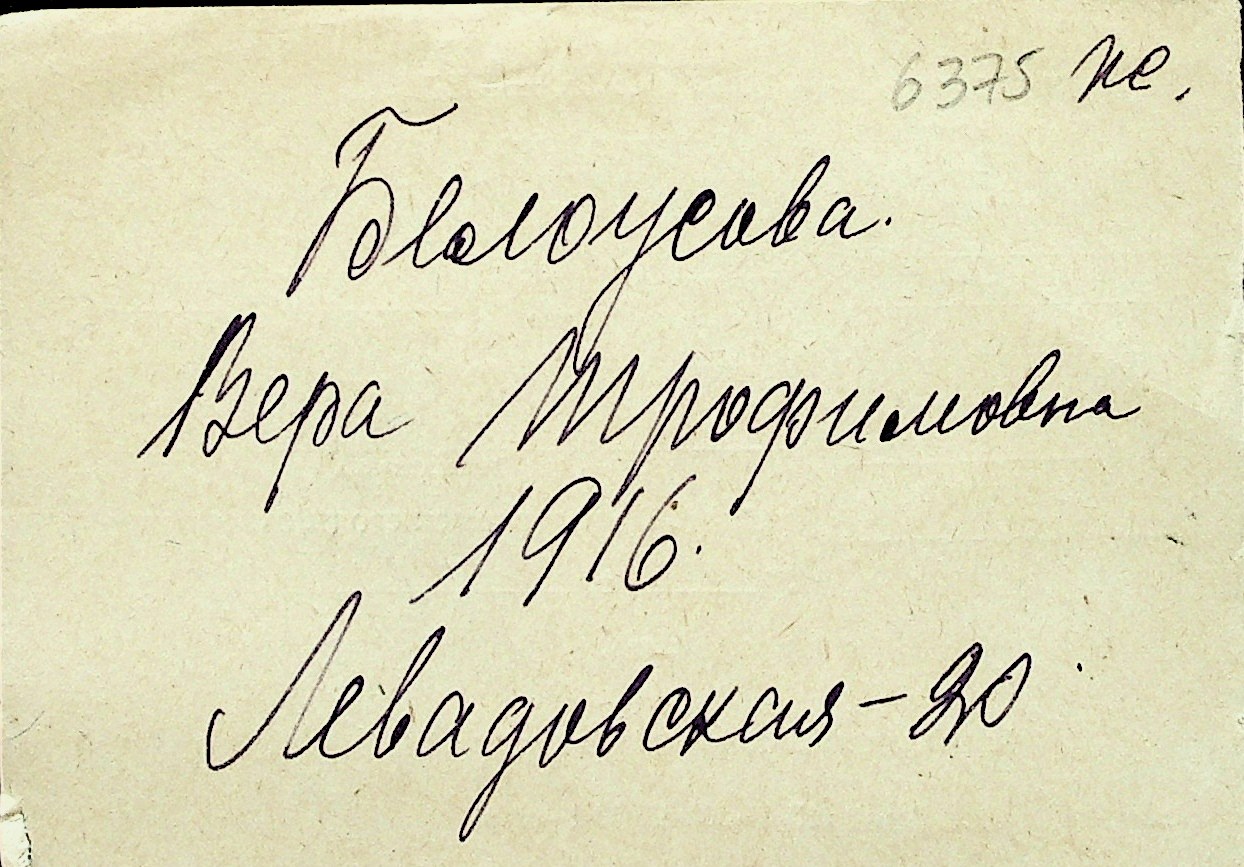 6375 не.
Белоусова.
Вера Трофимовна
1916.
Левадовская - 20